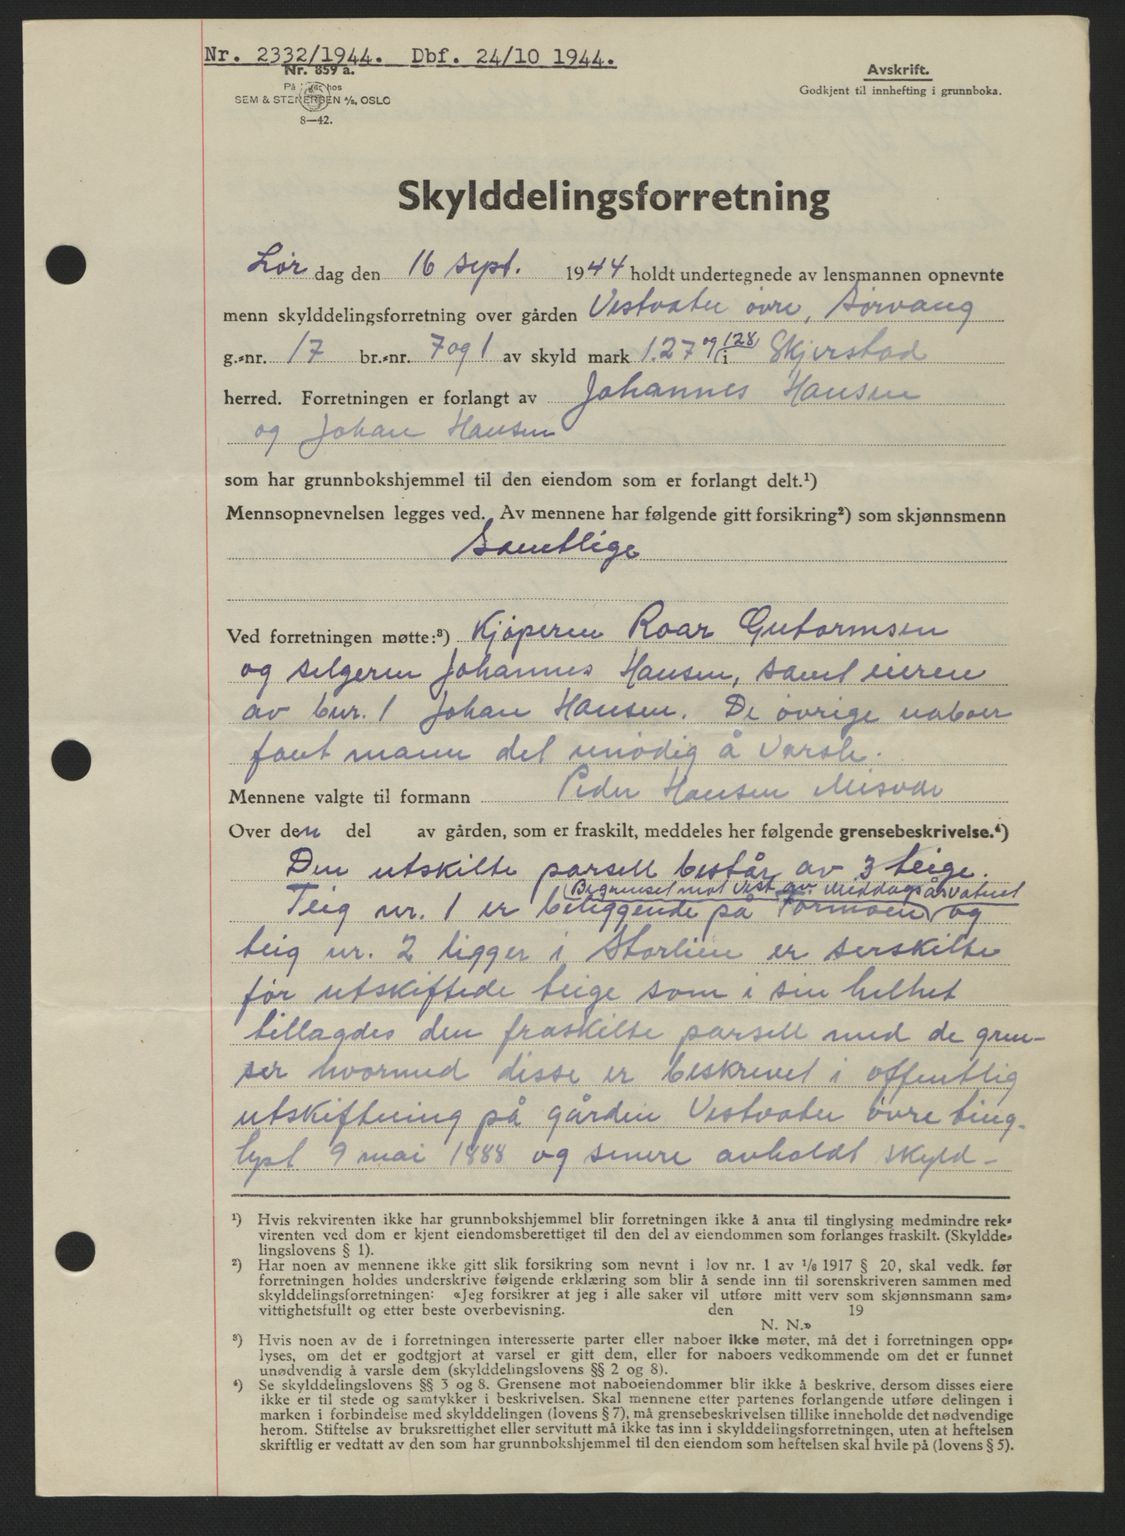 Nr. 2332/1944. Dbf. 24/10 1944.
Nr. 859 a.
På hos
SEM & STENERSEN A/S, OSLO
8—42.
Avskrift.
Godkjent til innhefting i grunnboka.
Skylddelingsforretning
Lør dag den 16 sept. 1944 holdt undertegnede av lensmannen opnevnte
menn skylddelingsforretning over gården Vestvatn övre, Sörvang
g.-nr. 17 br.-nr. 7 og 1 av skyld mark 1.27 og 1.28 i Skjerstad
herred. Forretningen er forlangt av Johannes Hansen
og Johan Hansen
som har grunnbokshjemmel til den eiendom som er forlangt delt.¹)
Mennsopnevnelsen legges ved. Av mennene har følgende gitt forsikring²) som skjønnsmenn
Samtlige
Ved forretningen møtte:³) Kjöperen Roar Gutormsen
og selgeren Johannes Hansen, samt eieren
av bnr. 1 Johan Hansen. De övrige naboer
fant mann det unödig å varsle.
Mennene valgte til formann Peder Hansen Misvær
Over den del av gården, som er fraskilt, meddeles her følgende grensebeskrivelse.⁴)
Den utskilte parsell består av 3 teige.
(Begrenset mot vest av Middagsårvatnet
Teig nr. 1 er beliggende på Formoen) og
teig nr. 2 ligger i Storlien er serskilte
før utskiftede teige som i sin helhet
tillagdes den fraskilte parsell med de gren-
ser hvormed disse er beskrevet i offentlig
utskiftning på gården Vestvatn övre ting-
lyst 9 mai 1888 og senere avholdt skyld-
¹) Hvis rekvirenten ikke har grunnbokshjemmel blir forretningen ikke å anta til tinglysing medmindre rek-
virenten ved dom er kjent eiendomsberettiget til den del av eiendommen som forlanges fraskilt. (Skyldde-
lingslovens § 1).
²) Har noen av mennene ikke gitt slik forsikring som nevnt i lov nr. 1 av 1/6 1917 § 20, skal vedk. før
forretningen holdes underskrive følgende erklæring som blir å sende inn til sorenskriveren sammen med
skylddelingsforretningen: «Jeg forsikrer at jeg i alle saker vil utføre mitt verv som skjønnsmann sam-
vittighetsfullt og etter beste overbevisning. den 19
N. N.»
³) Hvis noen av de i forretningen interesserte parter eller naboer ikke møter, må det i forretningen opp-
lyses, om det er godtgjort at varsel er gitt dem, eller for naboers vedkommende om det er funnet
unødvendig å varsle dem (skylddelingslovens §§ 2 og 8).
⁴) Se skylddelingslovens §§ 3 og 8. Grensene mot naboeiendommer blir ikke å beskrive, dersom disses eiere
ikke er til stede og samtykker i beskrivelsen. Skal mennene etter partenes forlangende utføre delingen i
marken i forbindelse med skylddelingen (lovens § 7), må grensebeskrivelsen tillike inneholde det nødvendige
herom. Stiftelse av bruksrettighet eller servitutt må ikke tas inn i skylddelingsforretningen, uten at heftelsen
skriftlig er vedtatt av den som har grunnbokshjemmel til den eiendom som heftelsen skal hvile på (lovens § 5).